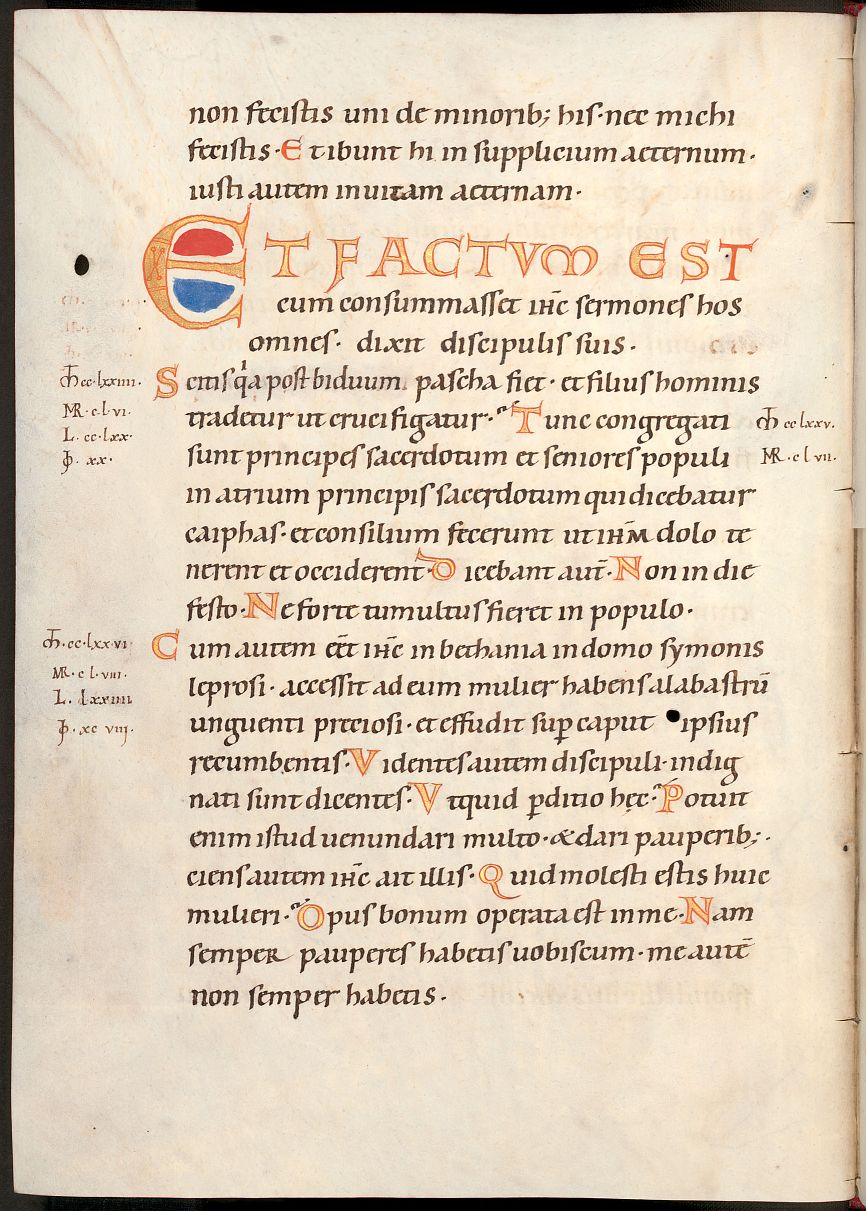 non fecistis uni de minorib; his· nec michi
fecistis· Et ibunt hi in supplicium aeternum·
iusti autem in uitam aeternam·
ET FACTVM EST
cum consummasset ihc sermones hos
omnes· dixit discipulis suis·
Mt cc·lxxiiii· Scitis qa post biduum pascha fiet· et filius hominis
MR·c·l·vi· tradetur ut crucifigatur· Tunc congregati Mt cclxxv·
L· cc·lxx·
Io· xx· sunt principes sacerdotum et seniores populi MR·c l vii·
in atrium principis sacerdotum qui dicebatur
caiphas· et consilium fecerunt ut ihm dolo te
nerent et occiderent· Dicebant aut̄· Non in die
festo· Ne forte tumultus fieret in populo·
Mt·cc·lxx·vi· Cum autem eēt ihc in bethania in domo symonis
MR·c l·viii·
L· lxxiiii leprosi· accessit ad eum mulier habens alabastrū
Io·xc viii· unguenti preciosi· et effudit sup̲ caput ipsius
recumbentis· Videntes autem discipuli· indig
nati sunt dicentes· Vtquid p̲ditio hęc· Potuit
enim istud uenundari multo· & dari pauperib;·
ciens autem ihc ait illis· Quid molesti estis huic
mulieri· Opus bonum operata est in me· Nam
semper pauperes habetis uobiscum· me autē
non semper habetis·